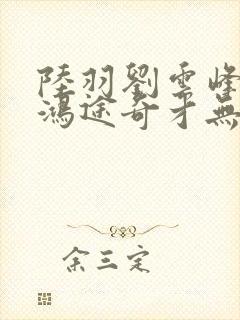 陸羽劉雲峰
鴻途奇才無
余三定